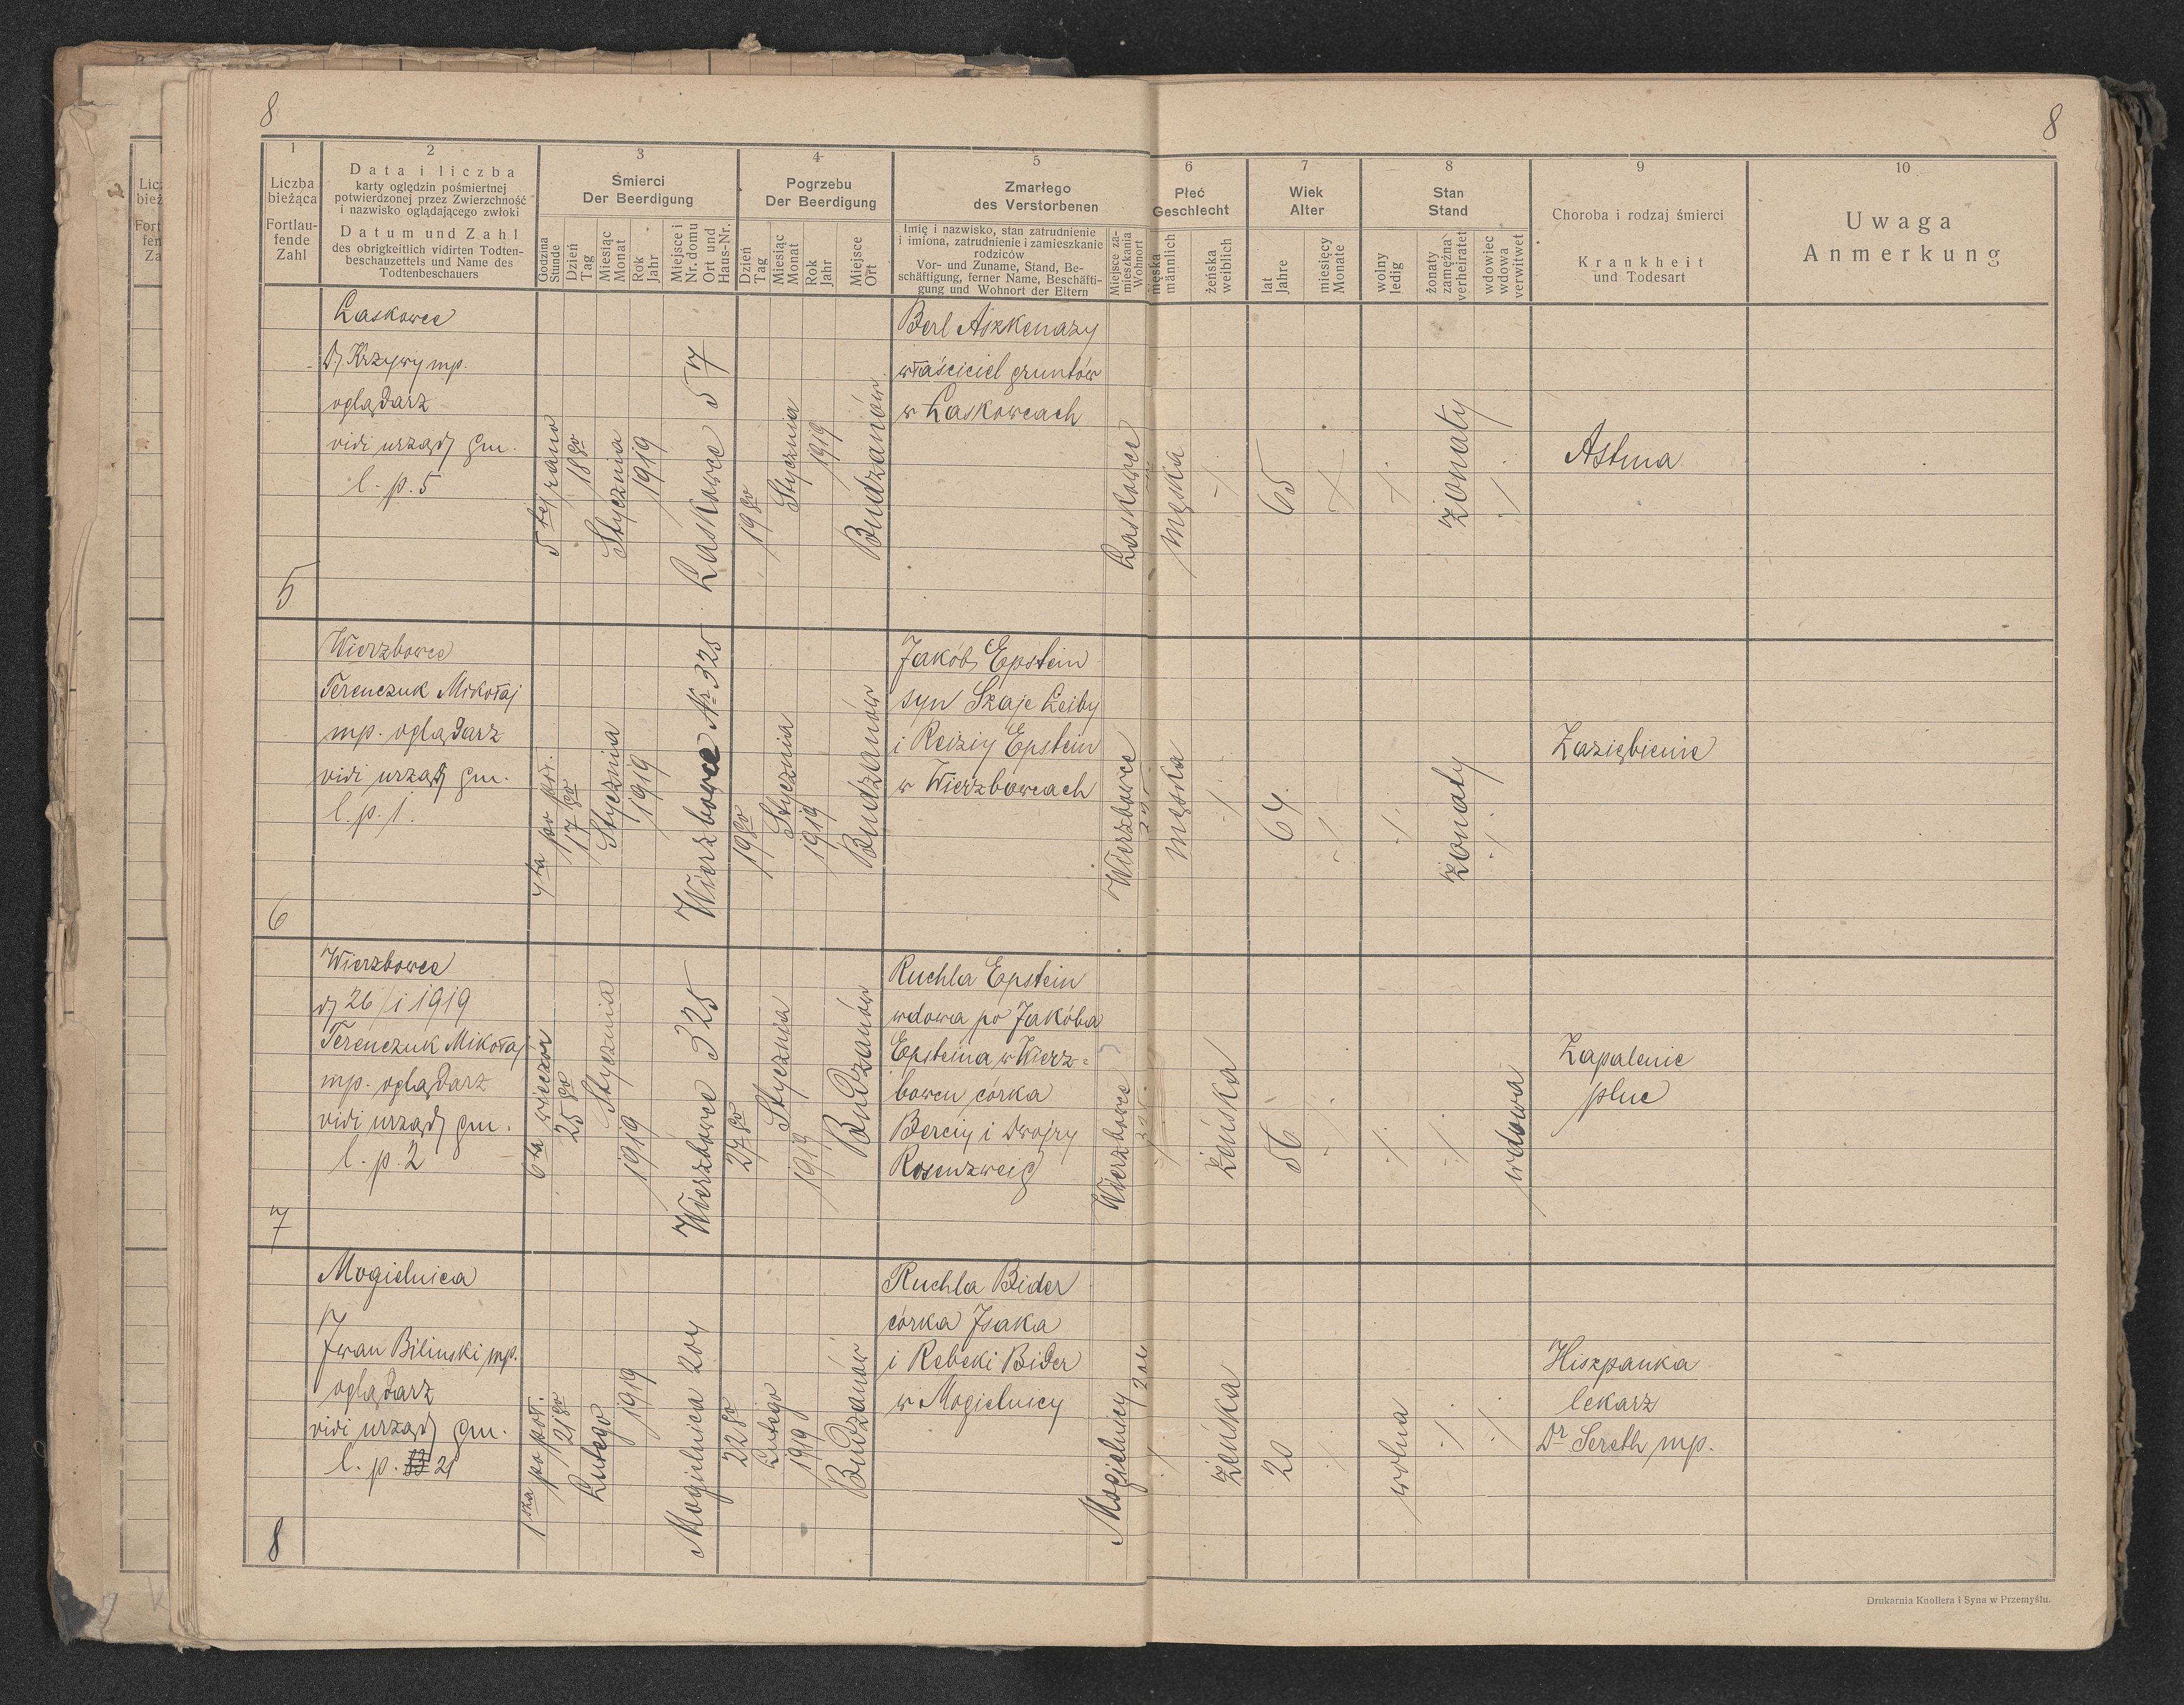 8
8
1
2
3
4
5
6
7
8
9
10
Liczba
bieżąca
Fortlau-
fende
Zahl
Data i liczba
karty oględzin pośmiertnej
potwierdzonej przez Zwierzchność
i nazwisko oglądającego zwłoki
Datum und Zahl
des obrigkeitlich vidirten Todten-
beschauzettels und Name des
Todtenbeschauers
Śmierci
Der Beerdigung
Godzina
Stunde
Dzień
Tag
Miesiąc
Monat
Rok
Jahr
Miejsce i
Nr. domu
Ort und
Haus-Nr.
Pogrzebu
Der Beerdigung
Dzień
Tag
Miesiąc
Monat
Rok
Jahr
Miejsce
Ort
Zmarłego
des Verstorbenen
Imię i nazwisko, stan zatrudnienie
i imiona, zatrudnienie i zamieszkanie
rodziców
Vor- und Zuname, Stand, Be-
schäftigung, ferner Name, Beschäfti-
gung und Wohnort der Eltern
Miejsce za-
mieszkania
Wohnort
Płeć
Geschlecht
męska
männlich
żeńska
weiblich
Wiek
Alter
lat
Jahre
miesięcy
Monate
Stan
Stand
wolny
ledig
żonaty
zamężna
verheiratet
wdowiec
wdowa
verwitwet
Choroba i rodzaj śmierci
Krankheit
und Todesart
Uwaga
Anmerkung
5
Laskowce
Krzywy mp.
oglądarz
vidi urząd gm.
l. p. 5
5tej rano
18go
Stycznia
1919
Laskowce 57
19go
Stycznia
1919
Budzanów
Berl Aszkenazy
właściciel gruntów
w Laskowcach
Laskowce
męska
65
żonaty
Astma
6
Wierzbowce
Terenczuk Mikołaj
mp. oglądarz
vidi urząd gm.
l. p. 1.
4ta po poł.
17go
Stycznia
1919
Wierzbowce Nr 325
19go
Stycznia
1919
Budzanów
Jakób Epstein
syn Szaje Leiby
i Reiziy Epstein
w Wierzbowcach
Wierzbowce
męska
64
żonaty
Zaziębienie
7
Wierzbowce
d 26/i 1919
Terenczuk Mikołaj
mp. oglądarz
vidi urząd gm.
l. p. 2
6ta wieczór
25go
Stycznia
1919
Wierzbowce 325
27go
Stycznia
1919
Budzanów
Ruchla Epstein
wdowa po Jakóba
Epsteina w Wierz=
bowcu córka
Berciy i Dwojry
Rosenzweig
Wierzbowce
żeńska
56
wdowa
Zapalenie
płuc
8
Mogielnica
Iwan Bilinski mp.
oglądarz
vidi urząd gm.
l. p. 21
1sza po poł.
21go
Lutego
1919
Mogielnica 204
22go
Lutego
1919
Budzanów
Ruchla Bider
córka Isaka
i Rebeki Bider
w Mogielnicy
Mogielnicy
żeńska
20
wolna
Hiszpanka
lekarz
Dr Sereth mp.
Drukarnia Knollera i Syna w Przemyślu.